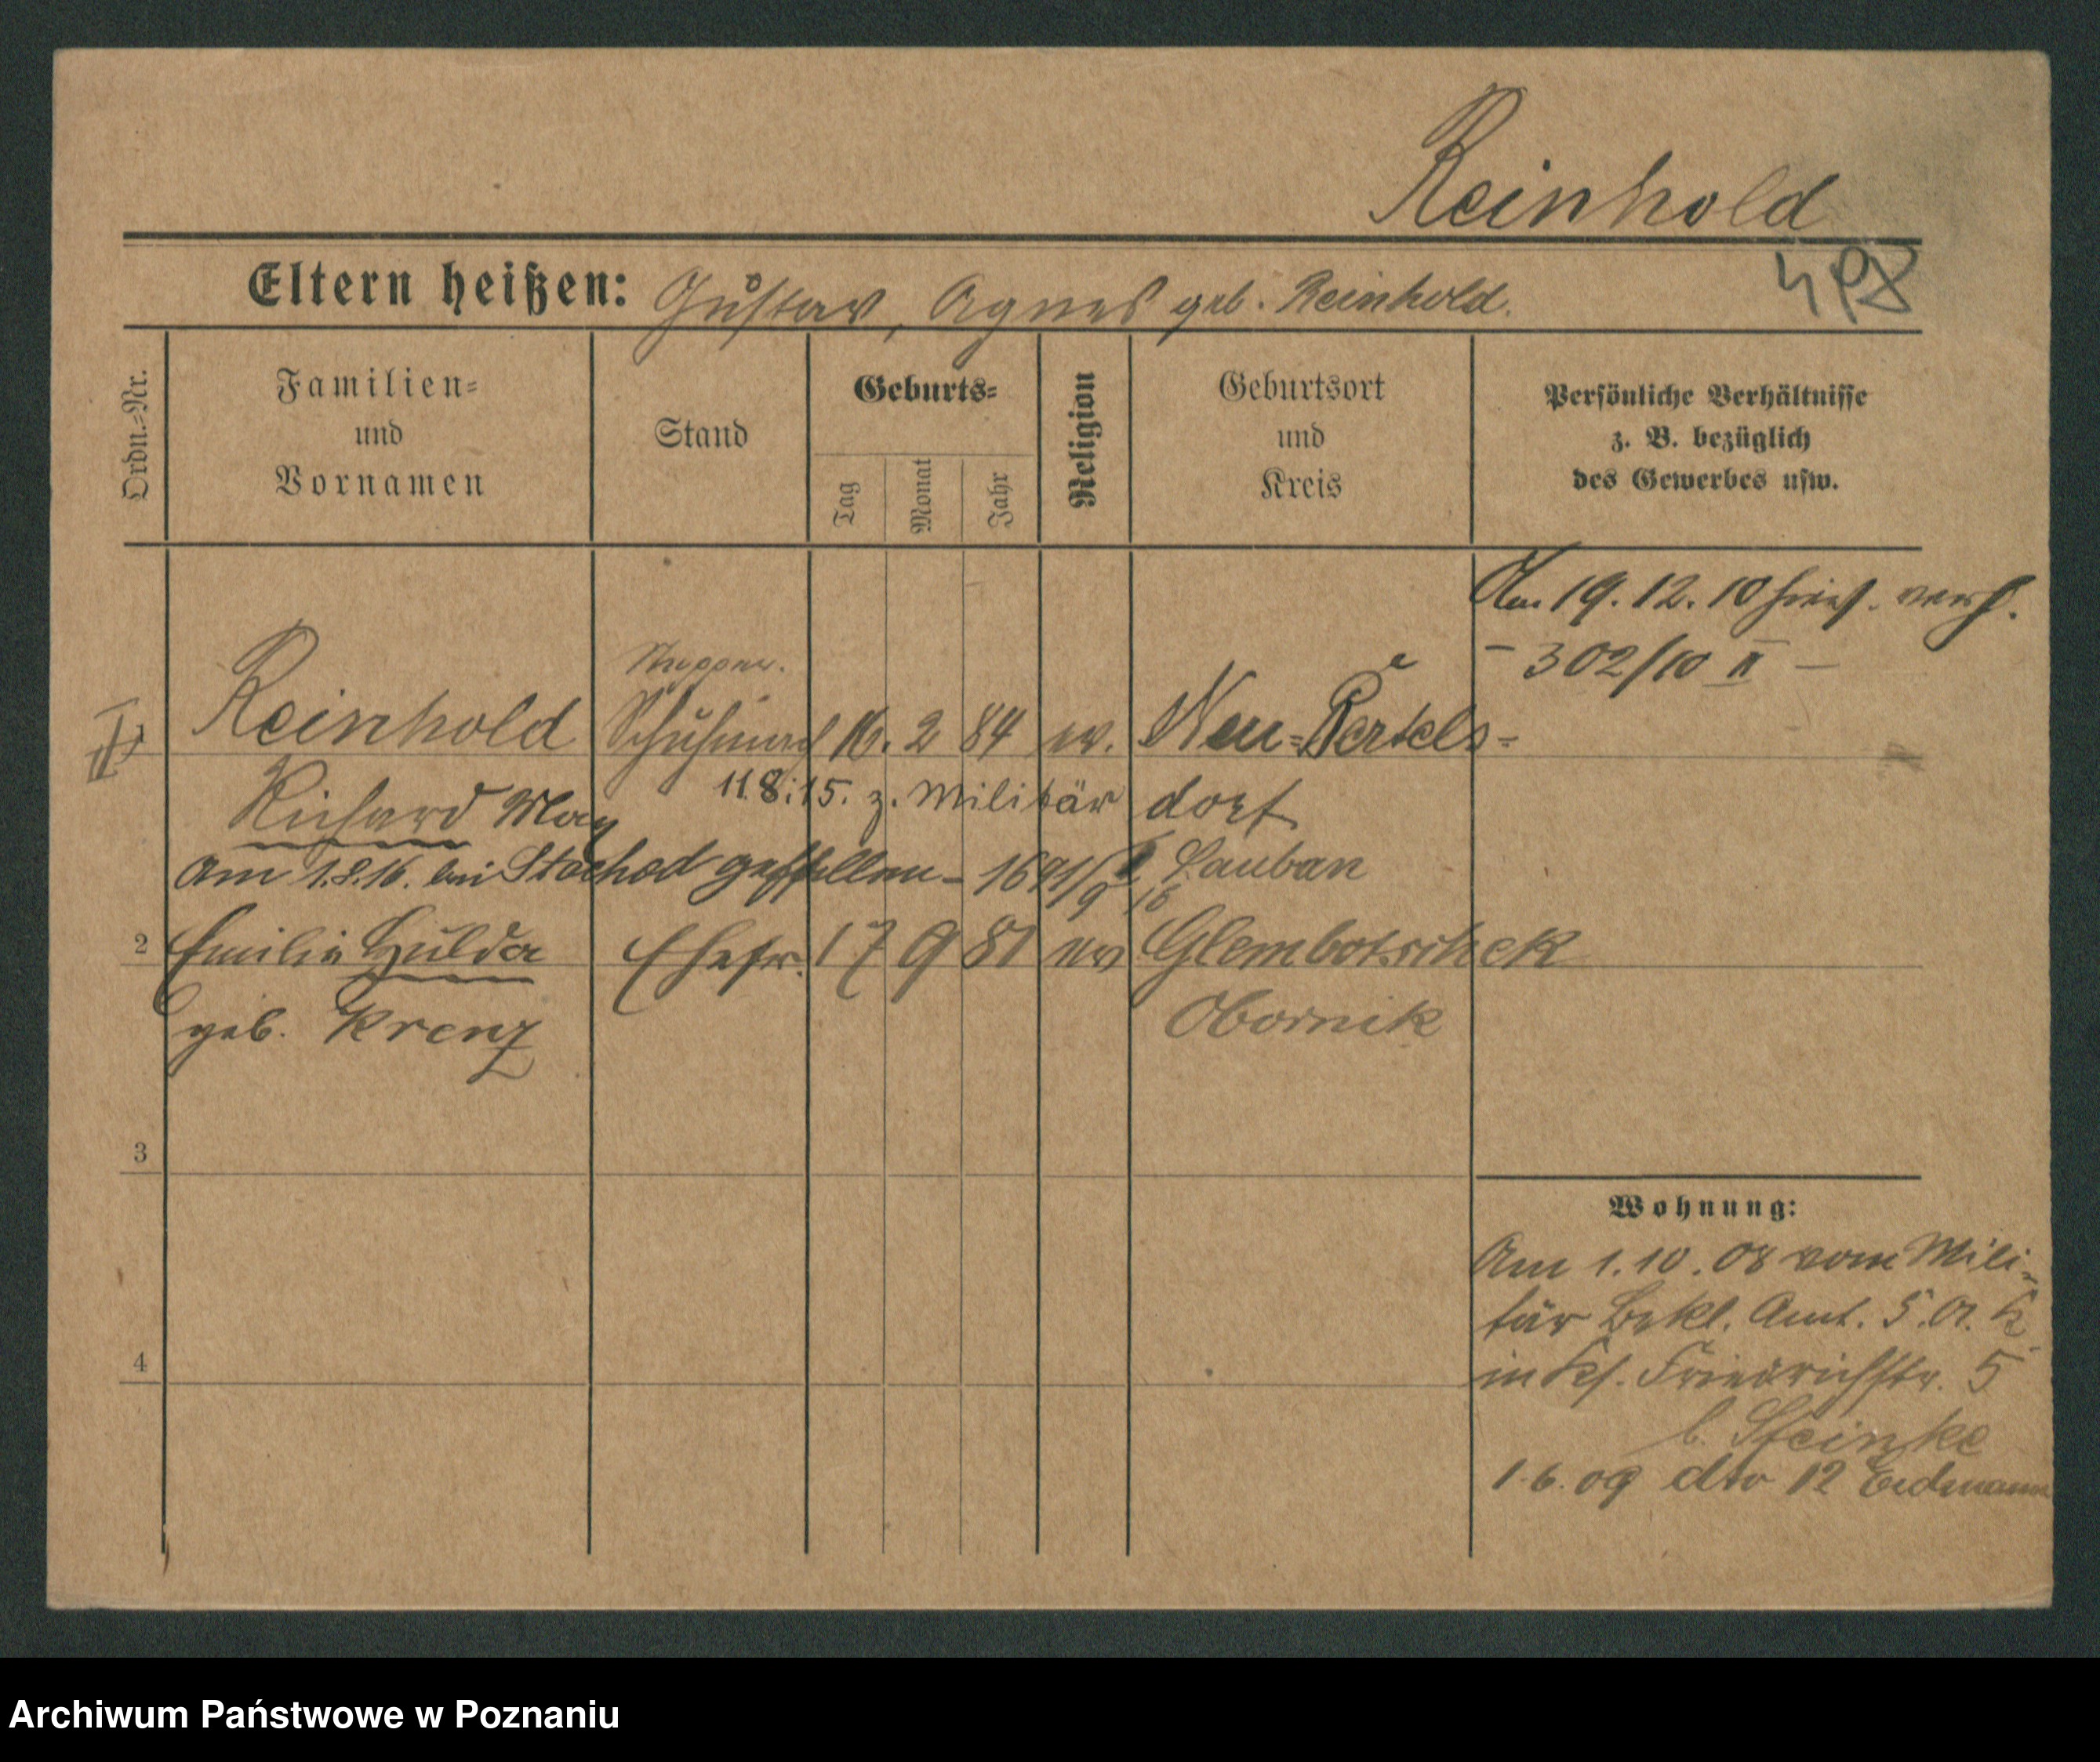 Reinhold
Eltern heißen: Gustav, Agnes geb. Reinhold.
Ordn.-Nr.
Familien-
und
Vornamen
Stand
Geburts-
Tag
Monat
Jahr
Religion
Geburtsort
und
Kreis
Persönliche Verhältnisse
z. B. bezüglich
des Gewerbes usw.
Am 19. 12. 10 verh.
- 302/10 II -
Reinhold Schuhmach 16. 2 84 ev. Neu-Bertels-
Richard Max 11.8.15. z. Militär dorf
Am 1.8.16. bei Stochod gefallen - Lauban
2 Emilie Hulda Ehefr. 17 9 81 ev Glembotschek
geb. Krenz Obornik
3
4
Wohnung:
Am 1.10.08 vom Mili-
tär Bekl. Amt. 5. A. K.
Friedrichstr. 5
b. Steinke
1.6.09 dto 12 Erdmann
Archiwum Państwowe w Poznaniu